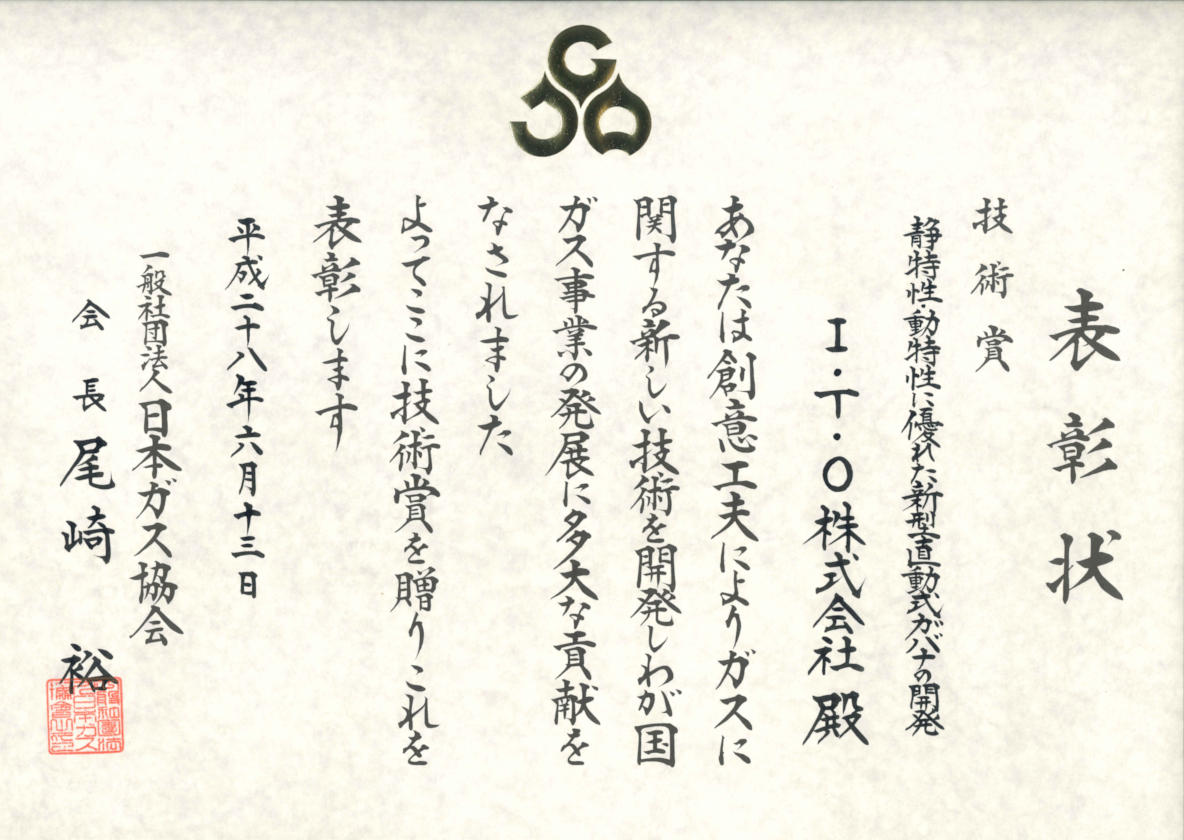 表彰状
技術賞
静特性・動特性に優れた新型直動式ガバナの開発
I・T・O株式会社殿
あなたは創意工夫によりガスに
関する新しい技術を開発しわが国
ガス事業の発展に多大な貢献を
なされました
よってここに技術賞を贈りこれを
表彰します
平成二十八年六月十三日
一般社団法人日本ガス協会
会長 尾崎 裕